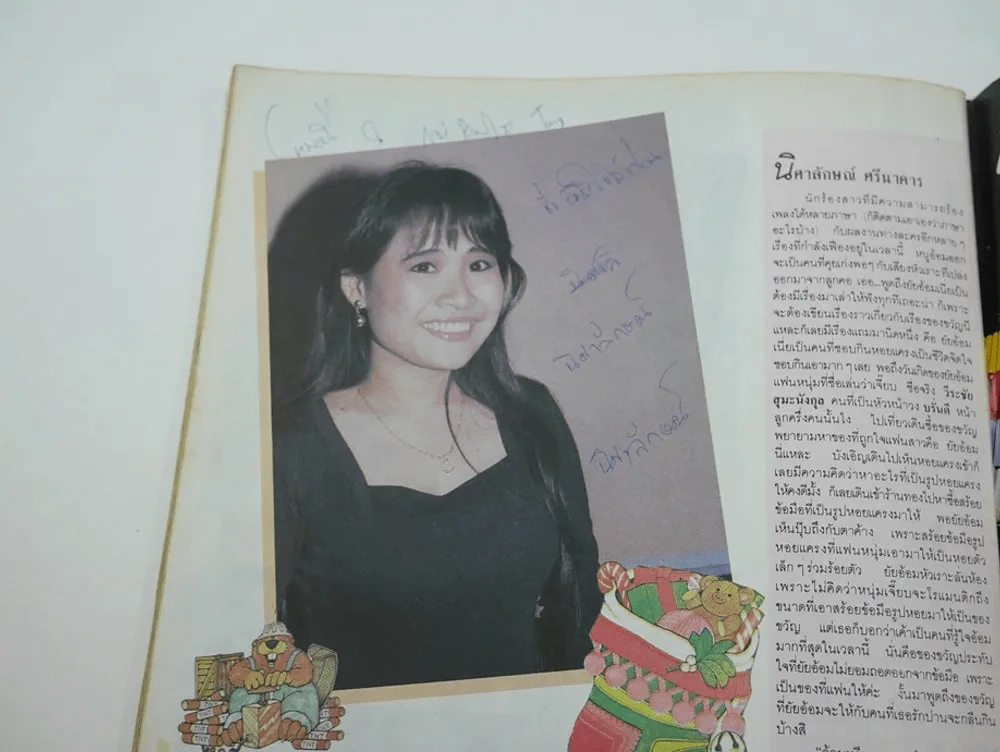 นิศาลักษณ์ ศรีนาคาร
นักร้องสาวที่มีความสามารถร้อง
เพลงได้หลายภาษา (ก็ติดตามเอาเองว่าภาษา
อะไรบ้าง) กับผลงานทางละครอีกหลาย ๆ
เรื่องที่กำลังเฟื่องอยู่ในเวลานี้ หนูอ้อมออก
จะเป็นคนที่คุยเก่งพอๆ กับเสียงหัวเราะที่เปล่ง
ออกมาจากลูกคอ เออ...พูดถึงยัยอ้อมเนี่ยเป็น
ต้องมีเรื่องมาเล่าให้ฟังทุกทีเถอะน่า ก็เพราะ
จะต้องเขียนเรื่องราวเกี่ยวกับเรื่องของขวัญนี่
แหละก็เลยมีเรื่องแถมมานิดหนึ่ง คือ ยัยอ้อม
เนี่ยเป็นคนที่ชอบกินหอยแครงเป็นชีวิตจิตใจ
ชอบกินเอามาก ๆ เลย พอถึงวันเกิดของยัยอ้อม
แฟนหนุ่มที่ชื่อเล่นว่าเจี๊ยบ ชื่อจริง วีระชัย
สุมะนังกุล คนที่เป็นหัวหน้าวง บรั่นดี หน้า
ลูกครึ่งคนนั้นไง ไปเที่ยวเดินซื้อของขวัญ
พยายามหาของที่ถูกใจแฟนสาวคือ ยัยอ้อม
นี่แหละ บังเอิญเดินไปเห็นหอยแครงเข้าก็
เลยมีความคิดว่าหาอะไรที่เป็นรูปหอยแครง
ให้คงดีมั้ง ก็เลยเดินเข้าร้านทองไปหาซื้อสร้อย
ข้อมือที่เป็นรูปหอยแครงมาให้ พอยัยอ้อม
เห็นปุ๊บถึงกับตาค้าง เพราะสร้อยข้อมือรูป
หอยแครงที่แฟนหนุ่มเอามาให้เป็นหอยตัว
เล็ก ๆ ร่วมร้อยตัว ยัยอ้อมหัวเราะลั่นห้อง
เพราะไม่คิดว่าหนุ่มเจี๊ยบจะโรแมนติกถึง
ขนาดที่เอาสร้อยข้อมือรูปหอยมาให้เป็นของ
ขวัญ แต่เธอก็บอกว่าเค้าเป็นคนที่รู้ใจอ้อม
มากที่สุดในเวลานี้ นั่นคือของขวัญประทับ
ใจที่ยัยอ้อมไม่ยอมถอดออกจากข้อมือ เพราะ
เป็นของที่แฟนให้ค่ะ งั้นมาพูดถึงของขวัญ
ที่ยัยอ้อมจะให้กับคนที่เธอรักปานจะกลืนกิน
บ้างสิ
นิศาลักษณ์
นิศาลักษณ์
TNT
TNT
TNT